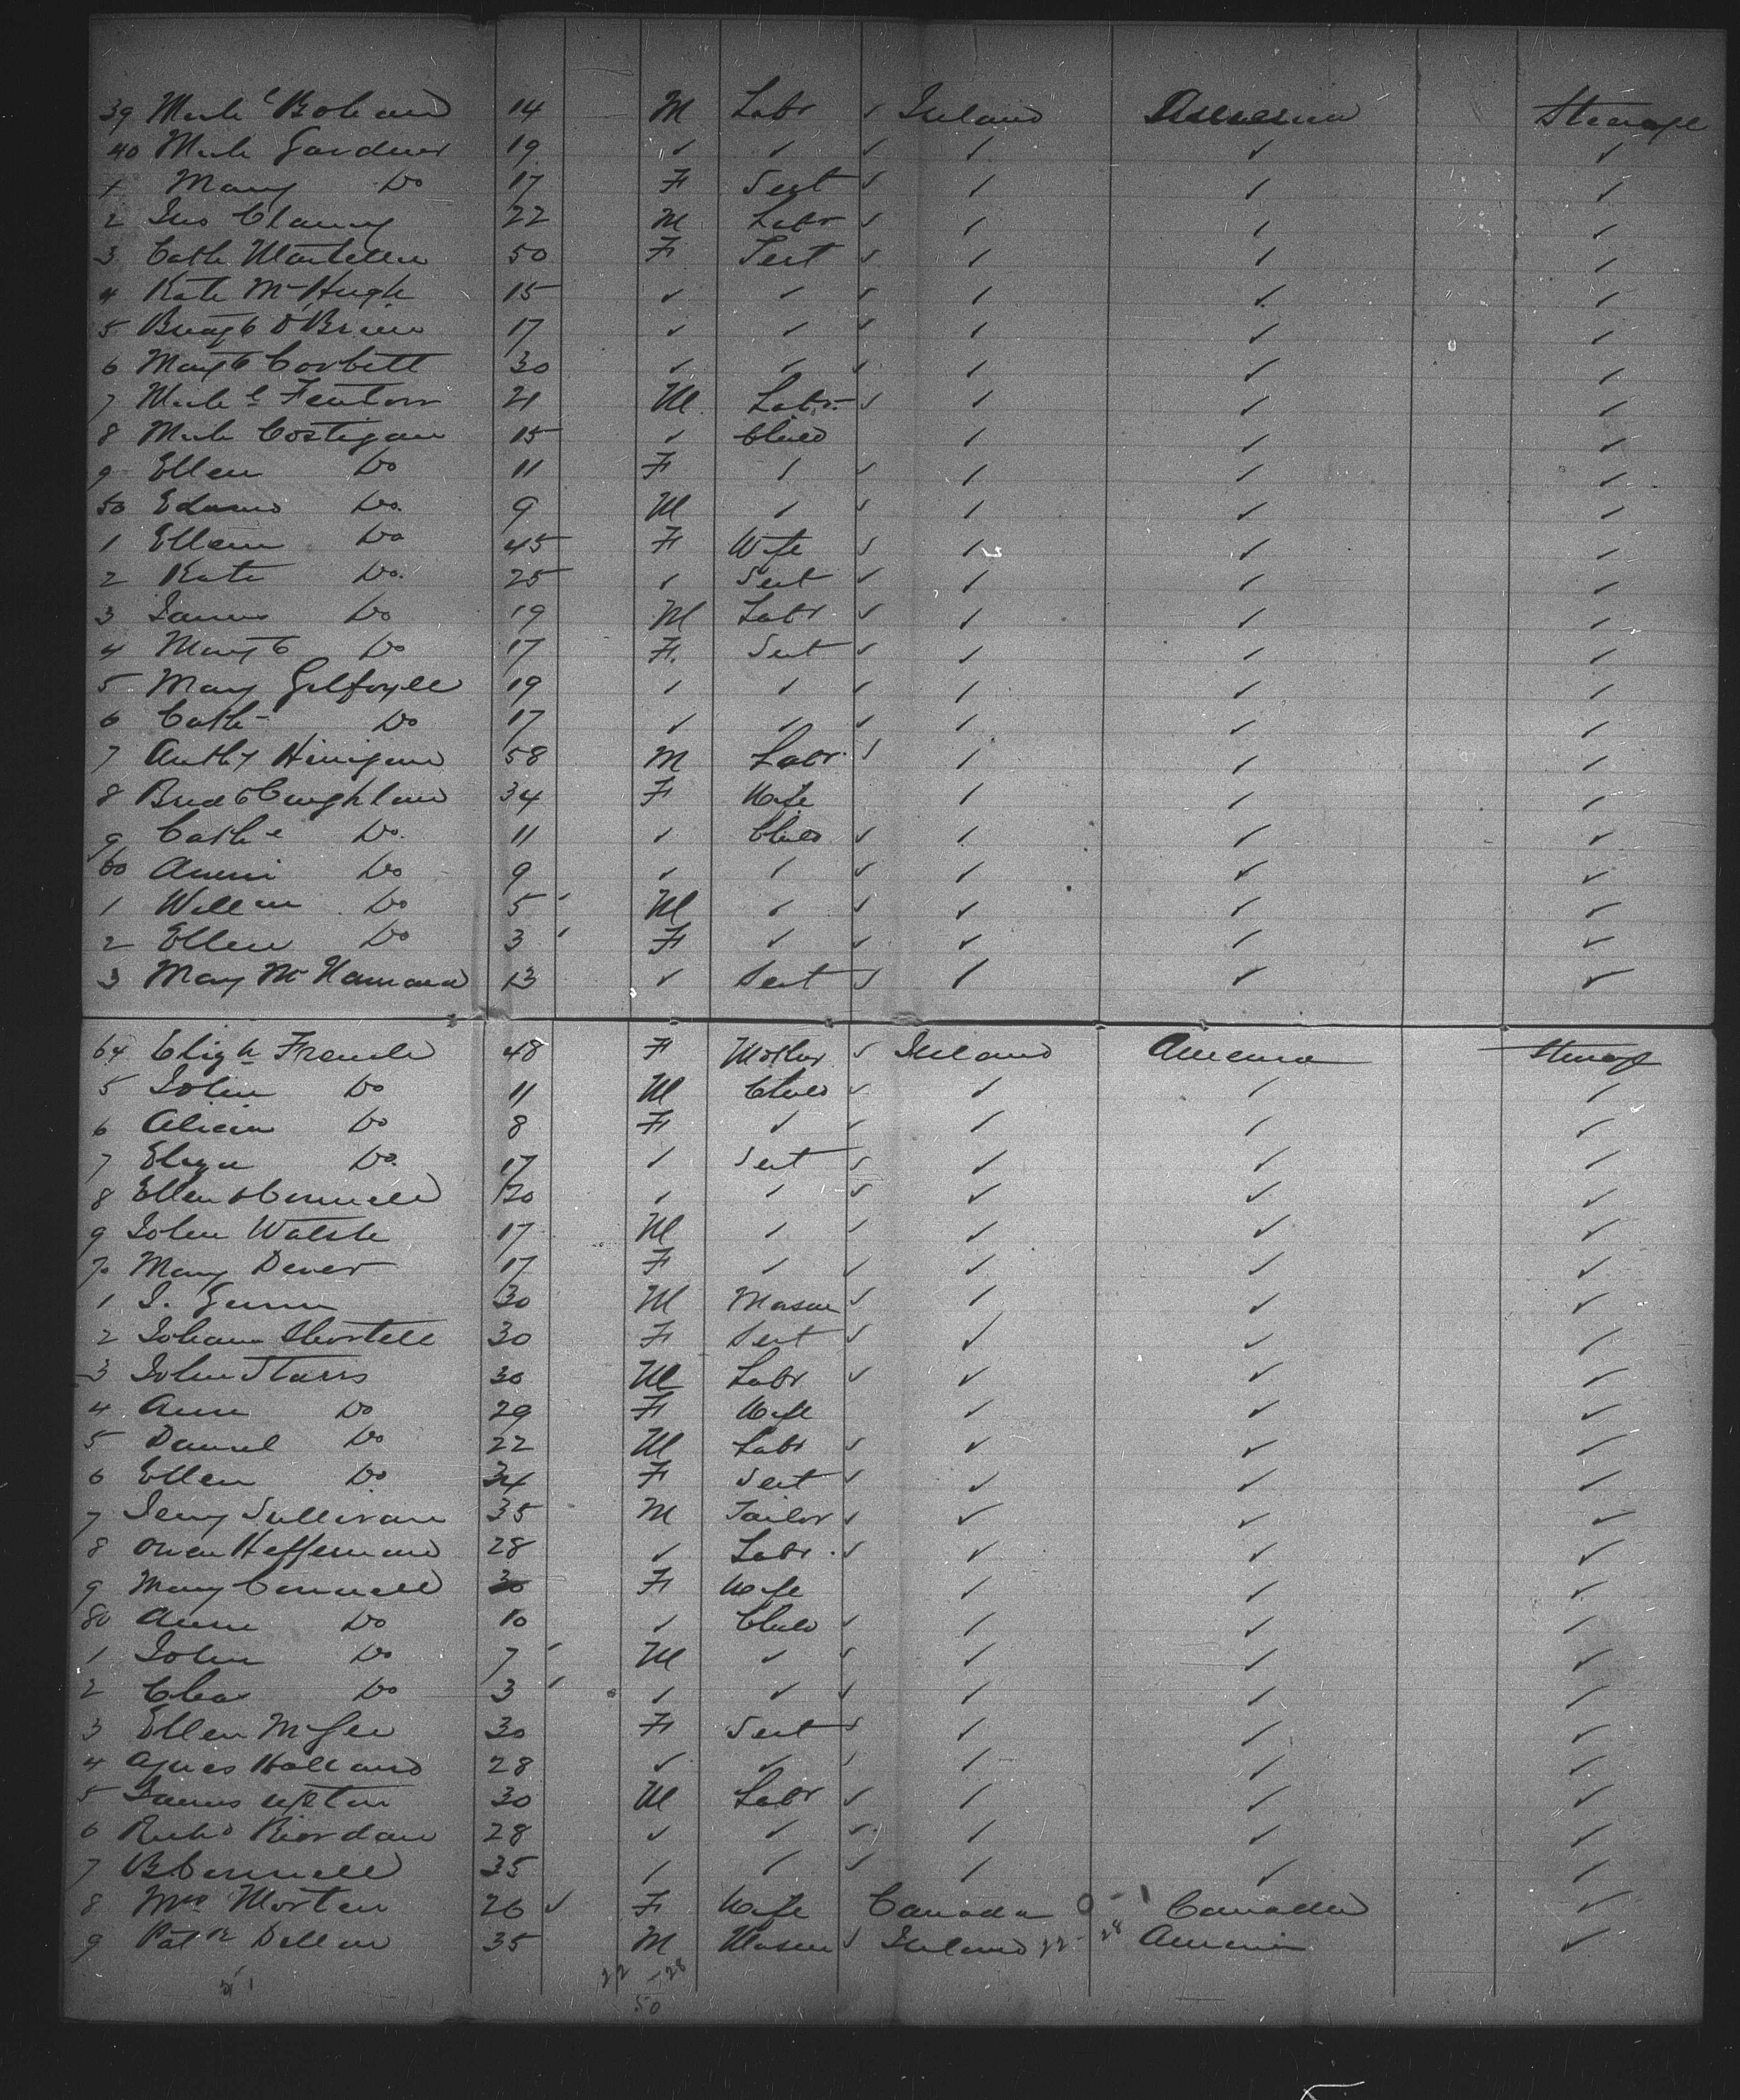 39 Michl Boland 14 M Labr ✓ Ireland America Steerage
40 Mich Gardner 19 ✓ ✓ ✓ ✓ ✓ ✓
1 Mary Do 17 F Sert ✓ ✓ ✓ ✓
2 Jno Clancy 22 M Labr ✓ ✓ ✓ ✓
3 Cath 50 F Sert ✓ ✓ ✓ ✓
4 Kate McHugh 15 ✓ ✓ ✓ ✓ ✓ ✓
5 O'Brien 17 ✓ ✓ ✓ ✓ ✓ ✓
6 Margt Corbett 30 ✓ ✓ ✓ ✓ ✓ ✓
7 Michl Fenton 21 M Labr ✓ ✓ ✓ ✓
8 Mich Costigan 15 ✓ Child ✓ ✓ ✓
9 Ellen Do 11 F ✓ ✓ ✓ ✓ ✓
50 Edmund Do. 9 M ✓ ✓ ✓ ✓ ✓
1 Ellen Do 45 F Wife ✓ ✓ ✓ ✓
2 Kate Do. 25 ✓ Sert ✓ ✓ ✓ ✓
3 James Do 19 M Labr ✓ ✓ ✓ ✓
4 Margt Do 17 F. Sert ✓ ✓ ✓ ✓
5 Mary Gilfoyle 19 ✓ ✓ ✓ ✓ ✓ ✓
6 Cath Do 17 ✓ ✓ ✓ ✓ ✓ ✓
7 Anthy Hinigan 58 M Labr ✓ ✓ ✓ ✓
8 Bridt Coughlan 34 F Wife ✓ ✓ ✓
9 Cathe Do. 11 ✓ Child ✓ ✓ ✓ ✓
60 Annie Do 9 ✓ ✓ ✓ ✓ ✓ ✓
1 Willm Do 5 M ✓ ✓ ✓ ✓ ✓
2 Ellen Do 3 F ✓ ✓ ✓ ✓ ✓
3 Mary McNamara 13 ✓ Sert ✓ ✓ ✓ ✓
64 Elizh French 48 F Mother ✓ Ireland America Steerage
5 John Do 11 M Child ✓ ✓ ✓ ✓
6 Alicia Do 8 F ✓ ✓ ✓ ✓ ✓
7 Eliza Do. 17 ✓ Sert ✓ ✓ ✓ ✓
8 Ellen OConnell 20 ✓ ✓ ✓ ✓ ✓ ✓
9 John Walsh 17 M ✓ ✓ ✓ ✓ ✓
70 Mary Dever 17 F ✓ ✓ ✓ ✓ ✓
1 J. 30 M Mason ✓ ✓ ✓ ✓
2 Johana Shortell 30 F Sert ✓ ✓ ✓ ✓
3 John Starrs 30 M Labr ✓ ✓ ✓ ✓
4 Ann Do 29 F Wife ✓ ✓ ✓
5 Daniel Do 22 M Labr ✓ ✓ ✓ ✓
6 Ellen Do 24 F Sert ✓ ✓ ✓ ✓
7 Jerry Sullivan 35 M Tailor ✓ ✓ ✓ ✓
8 Owen Heffernand 28 ✓ Labr ✓ ✓ ✓ ✓
9 Mary Connell 30 F Wife ✓ ✓ ✓
80 Anne Do 10 ✓ Child ✓ ✓ ✓ ✓
1 John Do 7 M ✓ ✓ ✓ ✓ ✓
2 Chas Do 3 ✓ ✓ ✓ ✓ ✓ ✓
3 Ellen McGee 30 F Sert ✓ ✓ ✓ ✓
4 Agnes Holland 28 ✓ ✓ ✓ ✓ ✓ ✓
5 James Upton 30 M Labr ✓ ✓ ✓ ✓
6 Richd Riordan 28 ✓ ✓ ✓ ✓ ✓ ✓
7 B Connell 35 ✓ ✓ ✓ ✓ ✓ ✓
8 Mrs Morton 26 ✓ F Wife Canada 0 - 1 Canada ✓
9 Patk Dillon 35 M Mason ✓ Ireland 22 - 28 America ✓
51 22 - 28
50